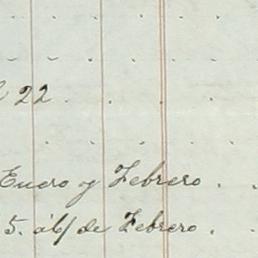 22 . . . .
Enero y Febrero . .
5. á 6/ de Febrero . .